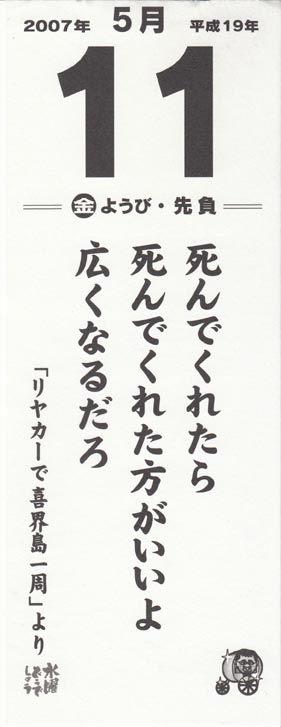 2007年 5月 平成19年
11
金ようび・先負
死んでくれたら
死んでくれた方がいいよ
広くなるだろ
「リヤカーで喜界島一周」より
水曜
どうで
しょう